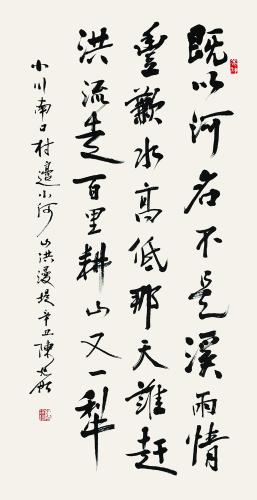 既以河名不是溪雨情
豐歉水高低那天誰赶
洪流走百里耕山又一犁
小川南口村邊小河山洪漫堤辛丑陳